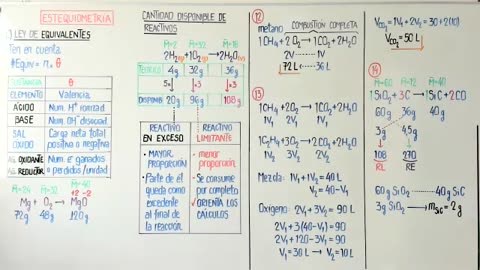 ESTEQUIOMETRIA
1) LEY DE EQUIVALENTES
Ten en cuenta
#Equiv = n . θ
SUSTANCIA θ
ELEMENTO Valencia
ÁCIDO Num. H⁺ ionizad
BASE Num. OH⁻ disociad
SAL Carga neta total
ÓXIDO positiva o negativa
Ag. OXIDANTE Num e⁻ ganados
Ag. REDUCTOR o perdidos/unidad
M̄=24 M̄=32 M̄=40
+2 -2
Mg + O₂ → MgO
72g 48g 120g
CANTIDAD DISPONIBLE DE
REACTIVOS
M̄=2 M̄=32 M̄=18
2H₂ + 1O₂ → 2H₂O
TEÓRICO 4g 32g 36g
↓×5 ↓×3 ↓×3
DISPONIB 20g 96g 108g
REACTIVO EN EXCESO
MAYOR PROPORCIÓN
Parte de él queda como excedente al final de la reacción.
REACTIVO LIMITANTE
menor proporción
Se consume por completo
ORIENTA LOS CÁLCULOS
12
metano COMBUSTION COMPLETA
1CH₄ + 2O₂ → 1CO₂ + 2H₂O
2V 36g
72L 36L
13
1CH₄ + 2O₂ → 1CO₂ + 2H₂O
1V₁ 2V₁ 1V₁
1C₂H₄ + 3O₂ → 2CO₂ + 2H₂O
1V₂ 3V₂ 2V₂
Mezcla: 1V₁ + 1V₂ = 40 L
V₂ = 40 - V₁
Oxígeno: 2V₁ + 3V₂ = 90 L
2V₁ + 3(40 - V₁) = 90
2V₁ + 120 - 3V₁ = 90
V₁ = 30 L → V₂ = 10 L
V_CO₂ = 1V₁ + 2V₂ = 30 + 2(10)
V_CO₂ = 50 L
14
M̄=60 M̄=12 M̄=40
1SiO₂ + 3C → 1SiC + 2CO
60g 36g 40g
3g 4,5g
108 270
RL RE
60g SiO₂ 40g SiC
3g SiO₂ → m SiC = 2g